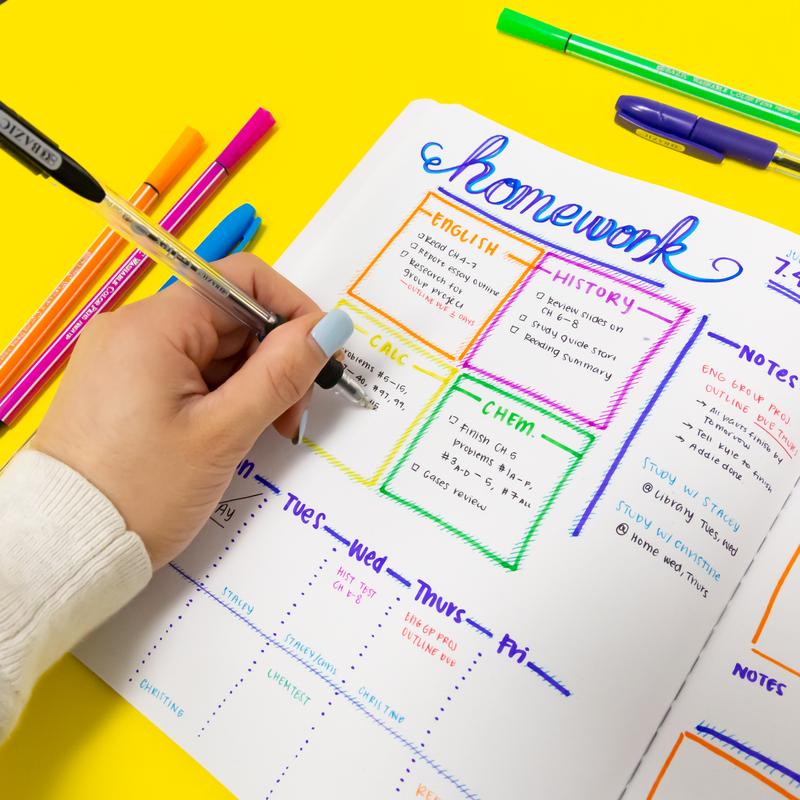 homework
ENGLISH
Read CH 4-7
Report essay outline
Research for
group project
- OUTLINE DUE 2 DAYS
HISTORY
Review slides on
CH 6-8
Study Guide Start
Reading summary
CALC
problems #5-15,
-40, #97, 99,
CHEM.
Finish CH 5
problems #1A-P,
#3A-D-5, #7 ALL
Gases review
NOTES
ENG GROUP PROJ
OUTLINE DUE THURS
→ All parts finish by
Tomorrow
→ Tell Kyle to finish
→ Addie done
STUDY W/ STACEY
@ Library Tues, Wed
STUDY W/ CHRISTINE
@ Home Wed, Thurs
Tues
Wed
Thurs
Fri
HIST TEST
CH 6-8
ENG GP PROJ
OUTLINE DUE
STACEY
STACEY/CHRIS
CHRISTINE
CHRISTINE
CHEM TEST
NOTES
BAZIC
BAZIC WASHABLE COLOR PENS
WASHABLE COLOR PENS
BAZIC